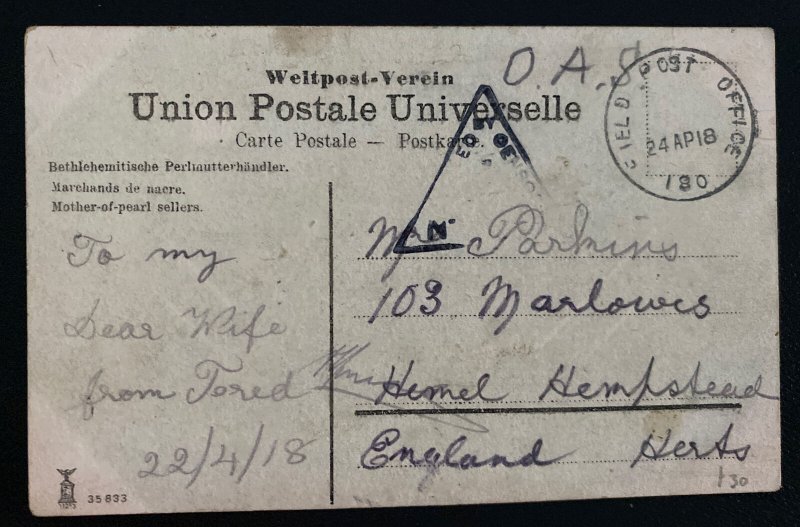 O.A.S
Weltpost-Verein
Union Postale Universelle
Carte Postale — Postkarte.
FIELD POST OFFICE
24 AP 18
180
Bethlehemitische Perlmutterhändler.
Marchands de nacre.
Mother-of-pearl sellers.
To my
Dear Wife
from
22/4/18
Parkins
103 Marlowes
Hemel Hempstead
England Herts
35833